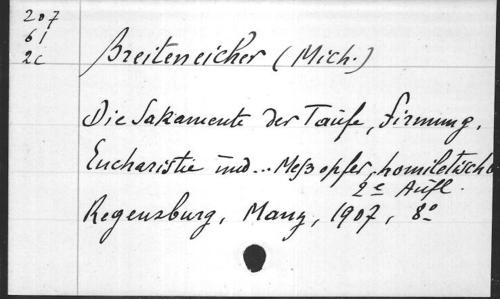 207
61
2c
Breiteneicher (Mich.)
Die Sakramente der Taufe, Firmung,
Eucharistie und... Meßopfer, homiletische
2e Aufl.
Regensburg, Manz, 1907, 8°